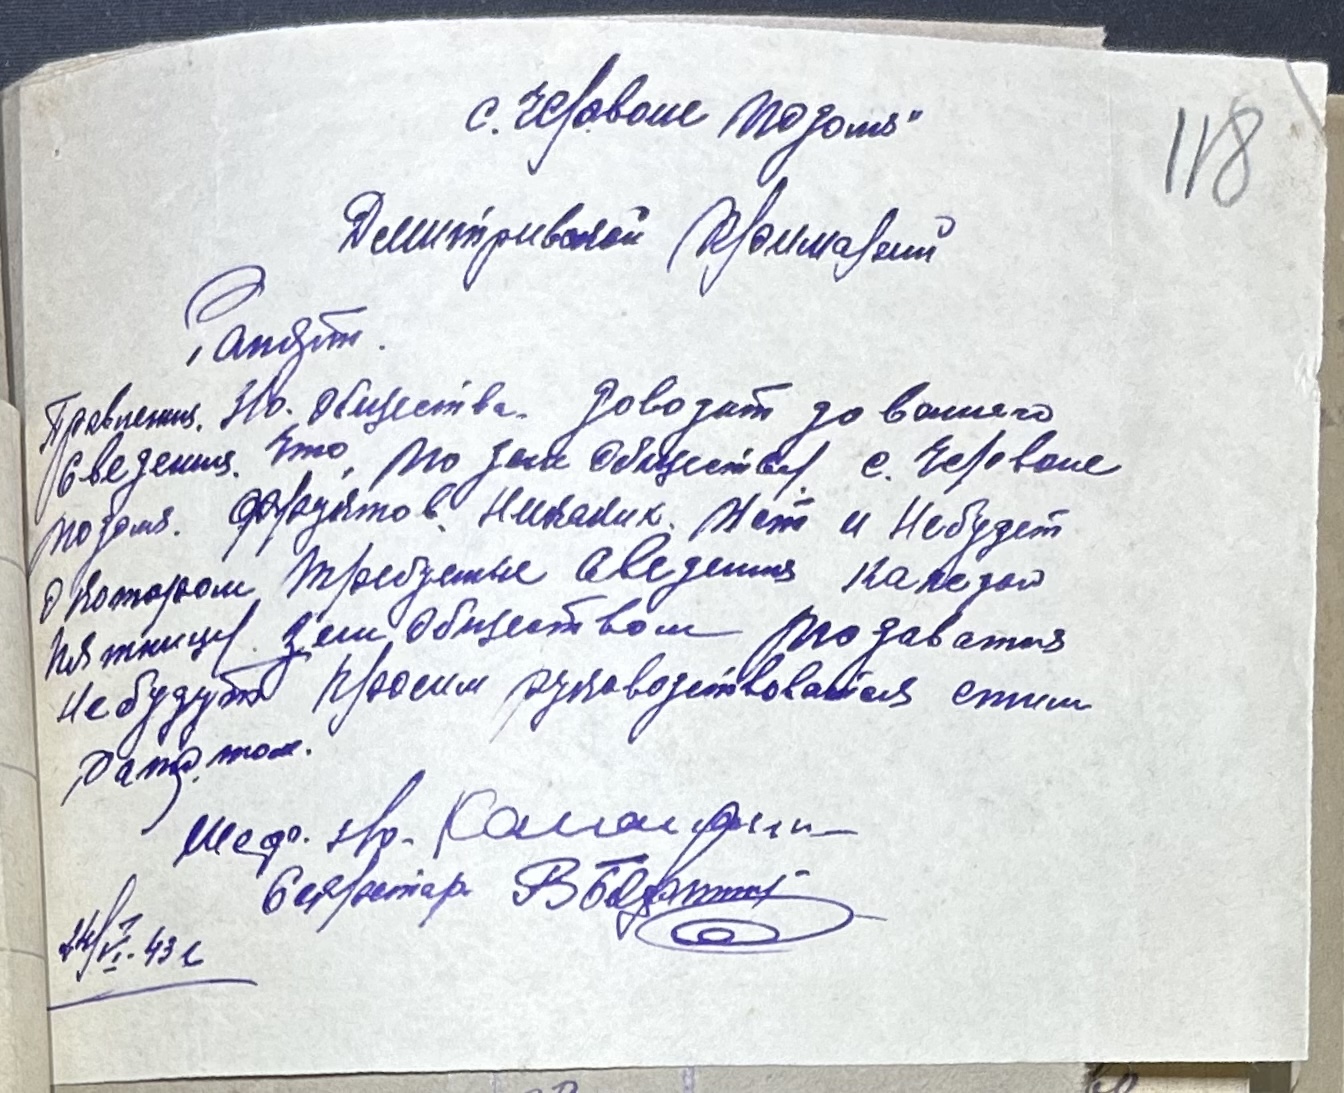 с. Червоне Подолля"
118
Дмитривской Примарии
Рапорт.
Правления. зко. общества. доводит до вашего
Сведения. Что, по зем обществу с. Червоне
подоля. фруктов. Никаких. Нет и Небудет
о котором требуемые Сведения каждой
пятницы зем обществом подаватся
Небудут просим руководствоватся етим
рапортом.
Шеф. зко.
Секретар
24/VI-43 г